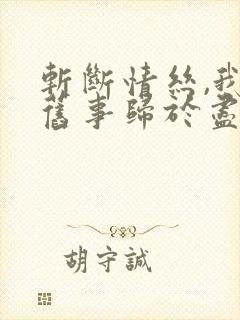 斬斷情絲,我
舊事歸於盡
胡守誠